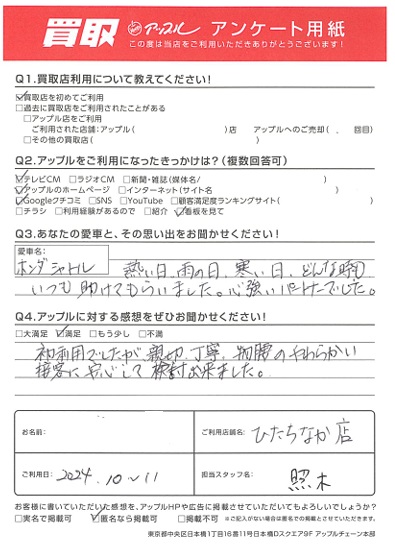 買取 アップル アンケート用紙
この度は当店をご利用いただきありがとうございます!
Q1.買取店利用について教えてください!
☑買取店を初めてご利用
□過去に買取店をご利用されたことがある
□アップル店をご利用
ご利用された店舗:アップル( )店 アップルへのご売却( 、 回目)
□その他の買取店( )
Q2.アップルをご利用になったきっかけは?(複数回答可)
☑テレビCM □ラジオCM □新聞・雑誌(媒体名/ )
☑アップルのホームページ □インターネット(サイト名 )
☑Googleクチコミ □SNS □YouTube □顧客満足度ランキングサイト( )
□チラシ □利用経験があるので □紹介 ☑看板を見て
Q3.あなたの愛車と、その思い出をお聞かせください!
愛車名:
ホンダシャトル 熱い日、雨の日、寒い日、どんな時も
いつも助けてもらいました。心強いパートナーでした。
Q4.アップルに対する感想をぜひお聞かせください!
□大満足 ☑満足 □もう少し □不満
初利用でしたが、親切、丁寧、物腰のやわらかい
接客に安心して検討出来ました。
お名前: ご利用店舗名: ひたちなか店
ご利用日: 2024.10〜11 担当スタッフ名: 照木
お客様に書いていただいた感想を、アップルHPや広告に掲載させていただいてもよろしいでしょうか?
□実名で掲載可 ☑匿名なら掲載可 □掲載不可 ※ご記入がない場合は匿名での掲載とさせていただきます。
東京都中央区日本橋1丁目16番11号日本橋Dスクエア9F アップルチェーン本部